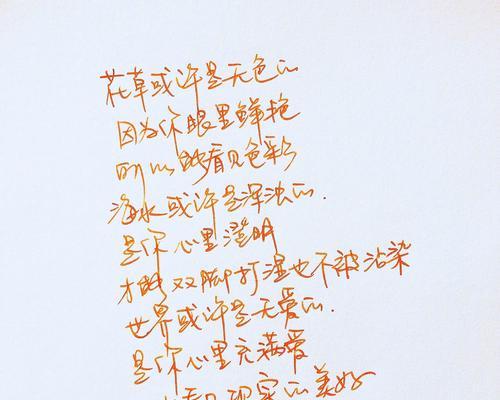 花草或许是无色的
因为你眼里鲜艳
所以能看见色彩
海水或许是浑浊的.
是你心里澄明
才能双脚打湿也不被沾染
世界或许是无爱的.
是你心里充满爱
看见现实的美好